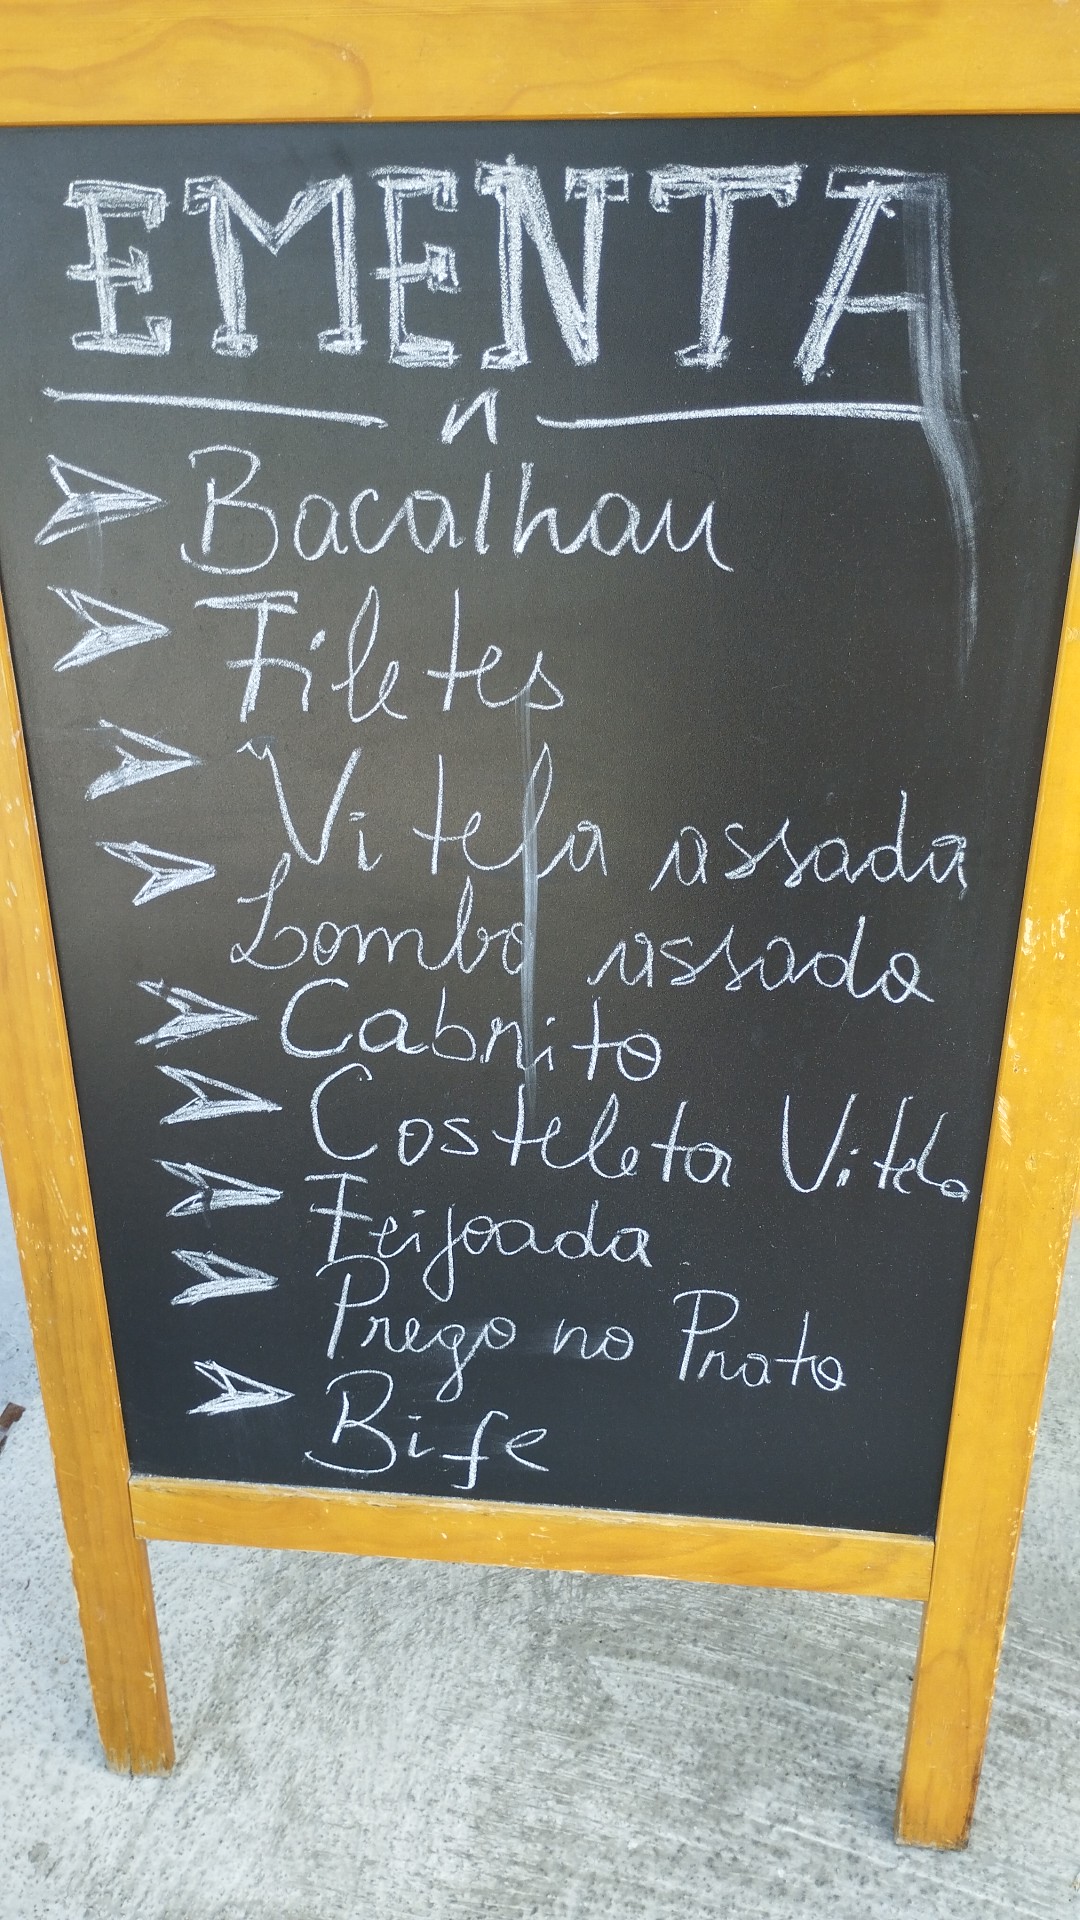 EMENTA
Bacalhau
Filetes
Vitela assada
Lombo assado
Cabrito
Costeleta Vitela
Feijoada
Prego no Prato
Bife